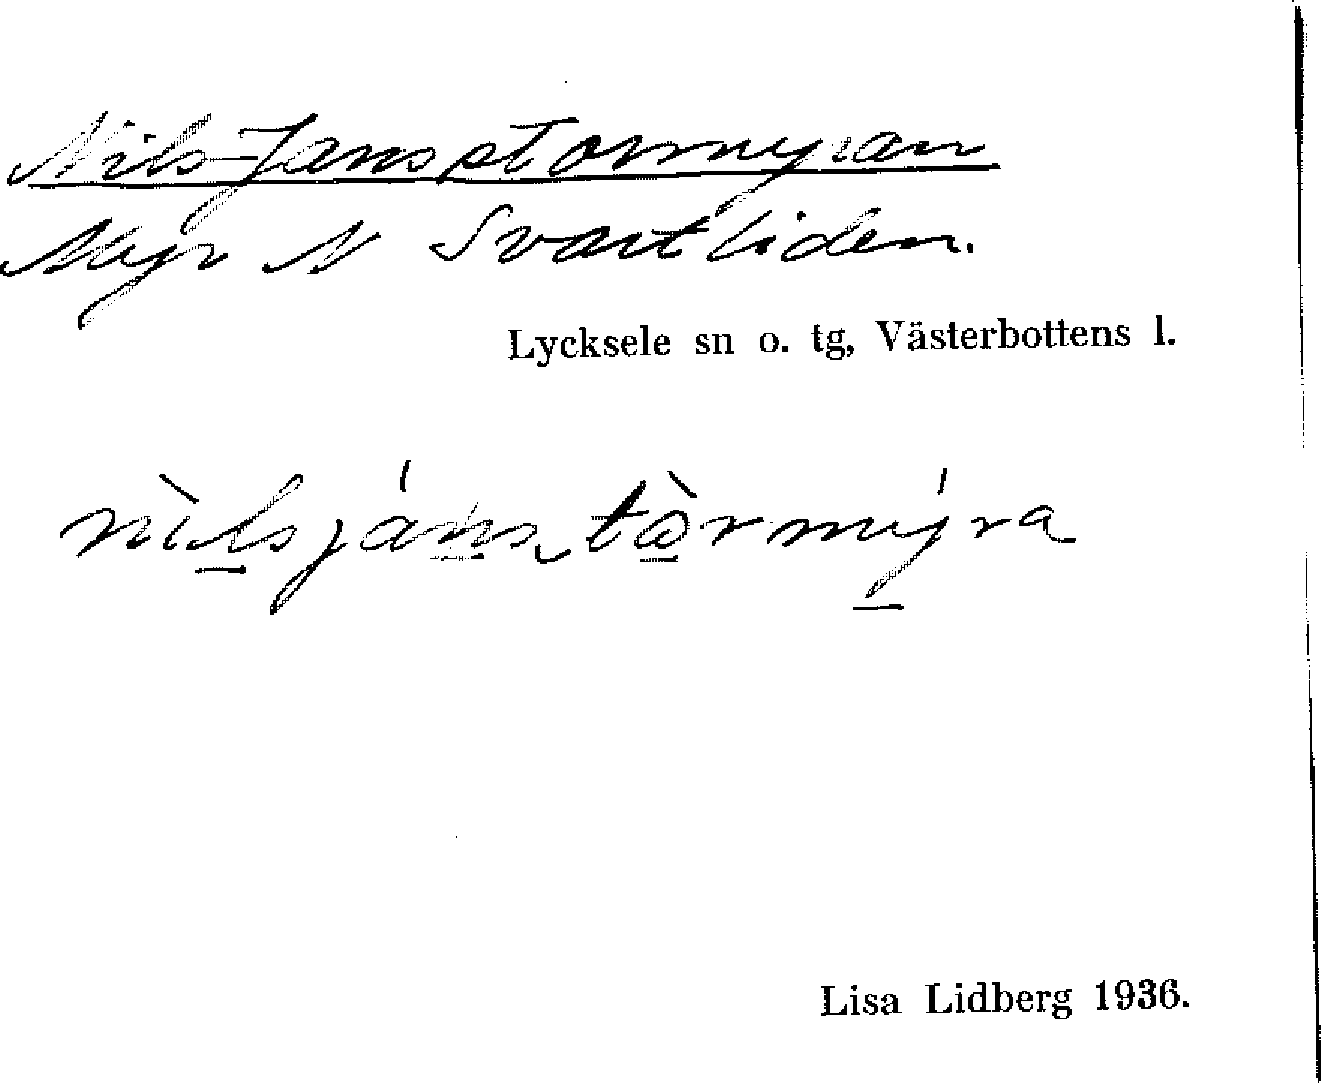 Nils-Jansstormyran
Myr N Svartliden.
Lycksele sn o. tg, Västerbottens l.
nìlsjáns tòrmýra
Lisa Lidberg 1936.